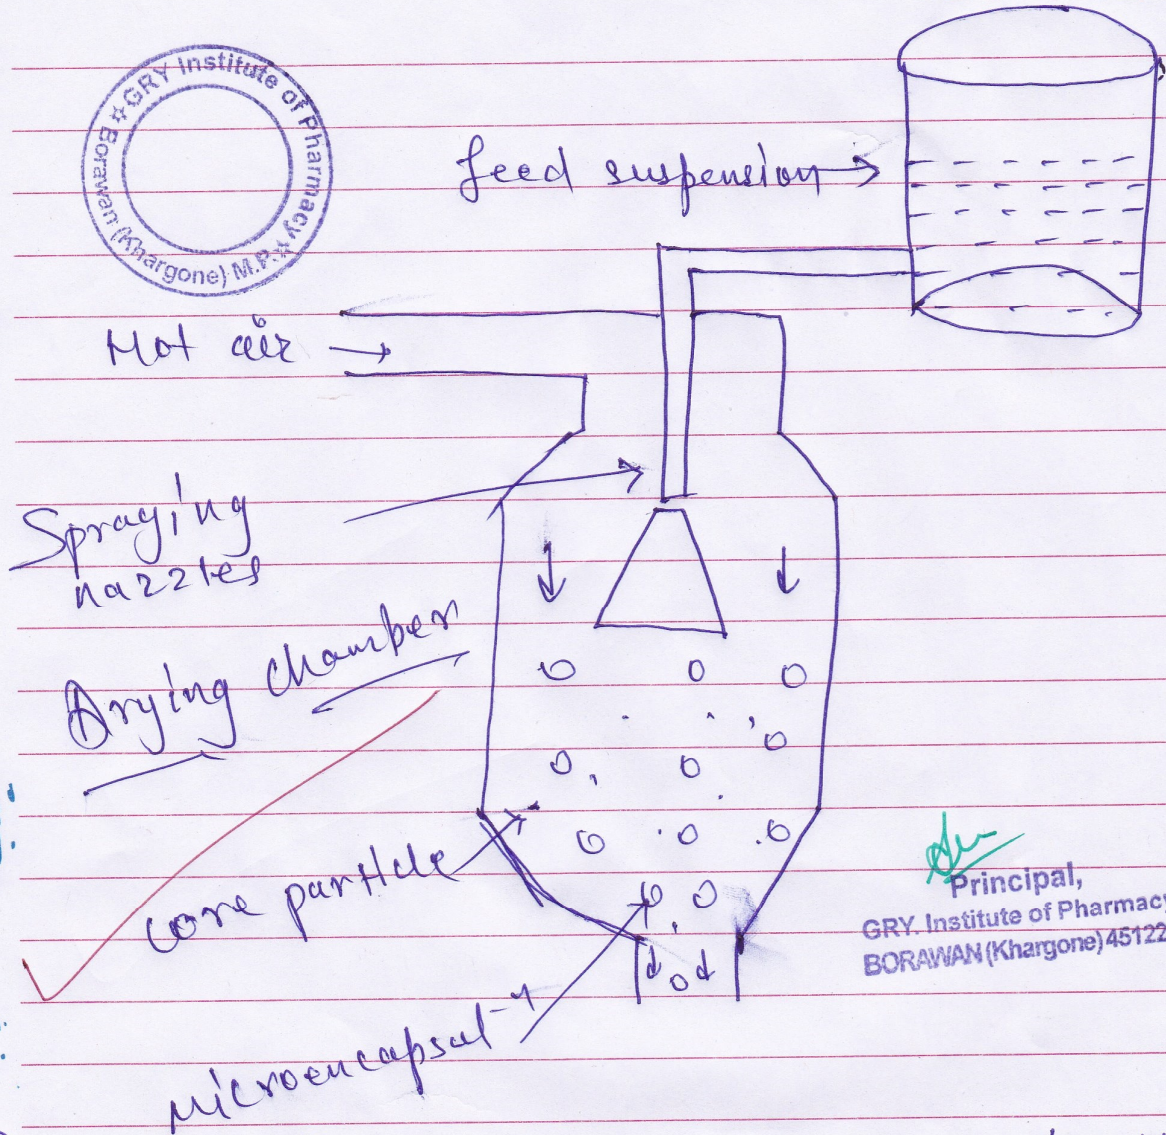 GRY Institute of Pharmacy
Borawan (Khargone) M.P.
feed suspension
Hot air
Spraying
nozzles
Drying chamber
core particle
microencapsul
Principal,
GRY. Institute of Pharmacy
BORAWAN (Khargone) 45122